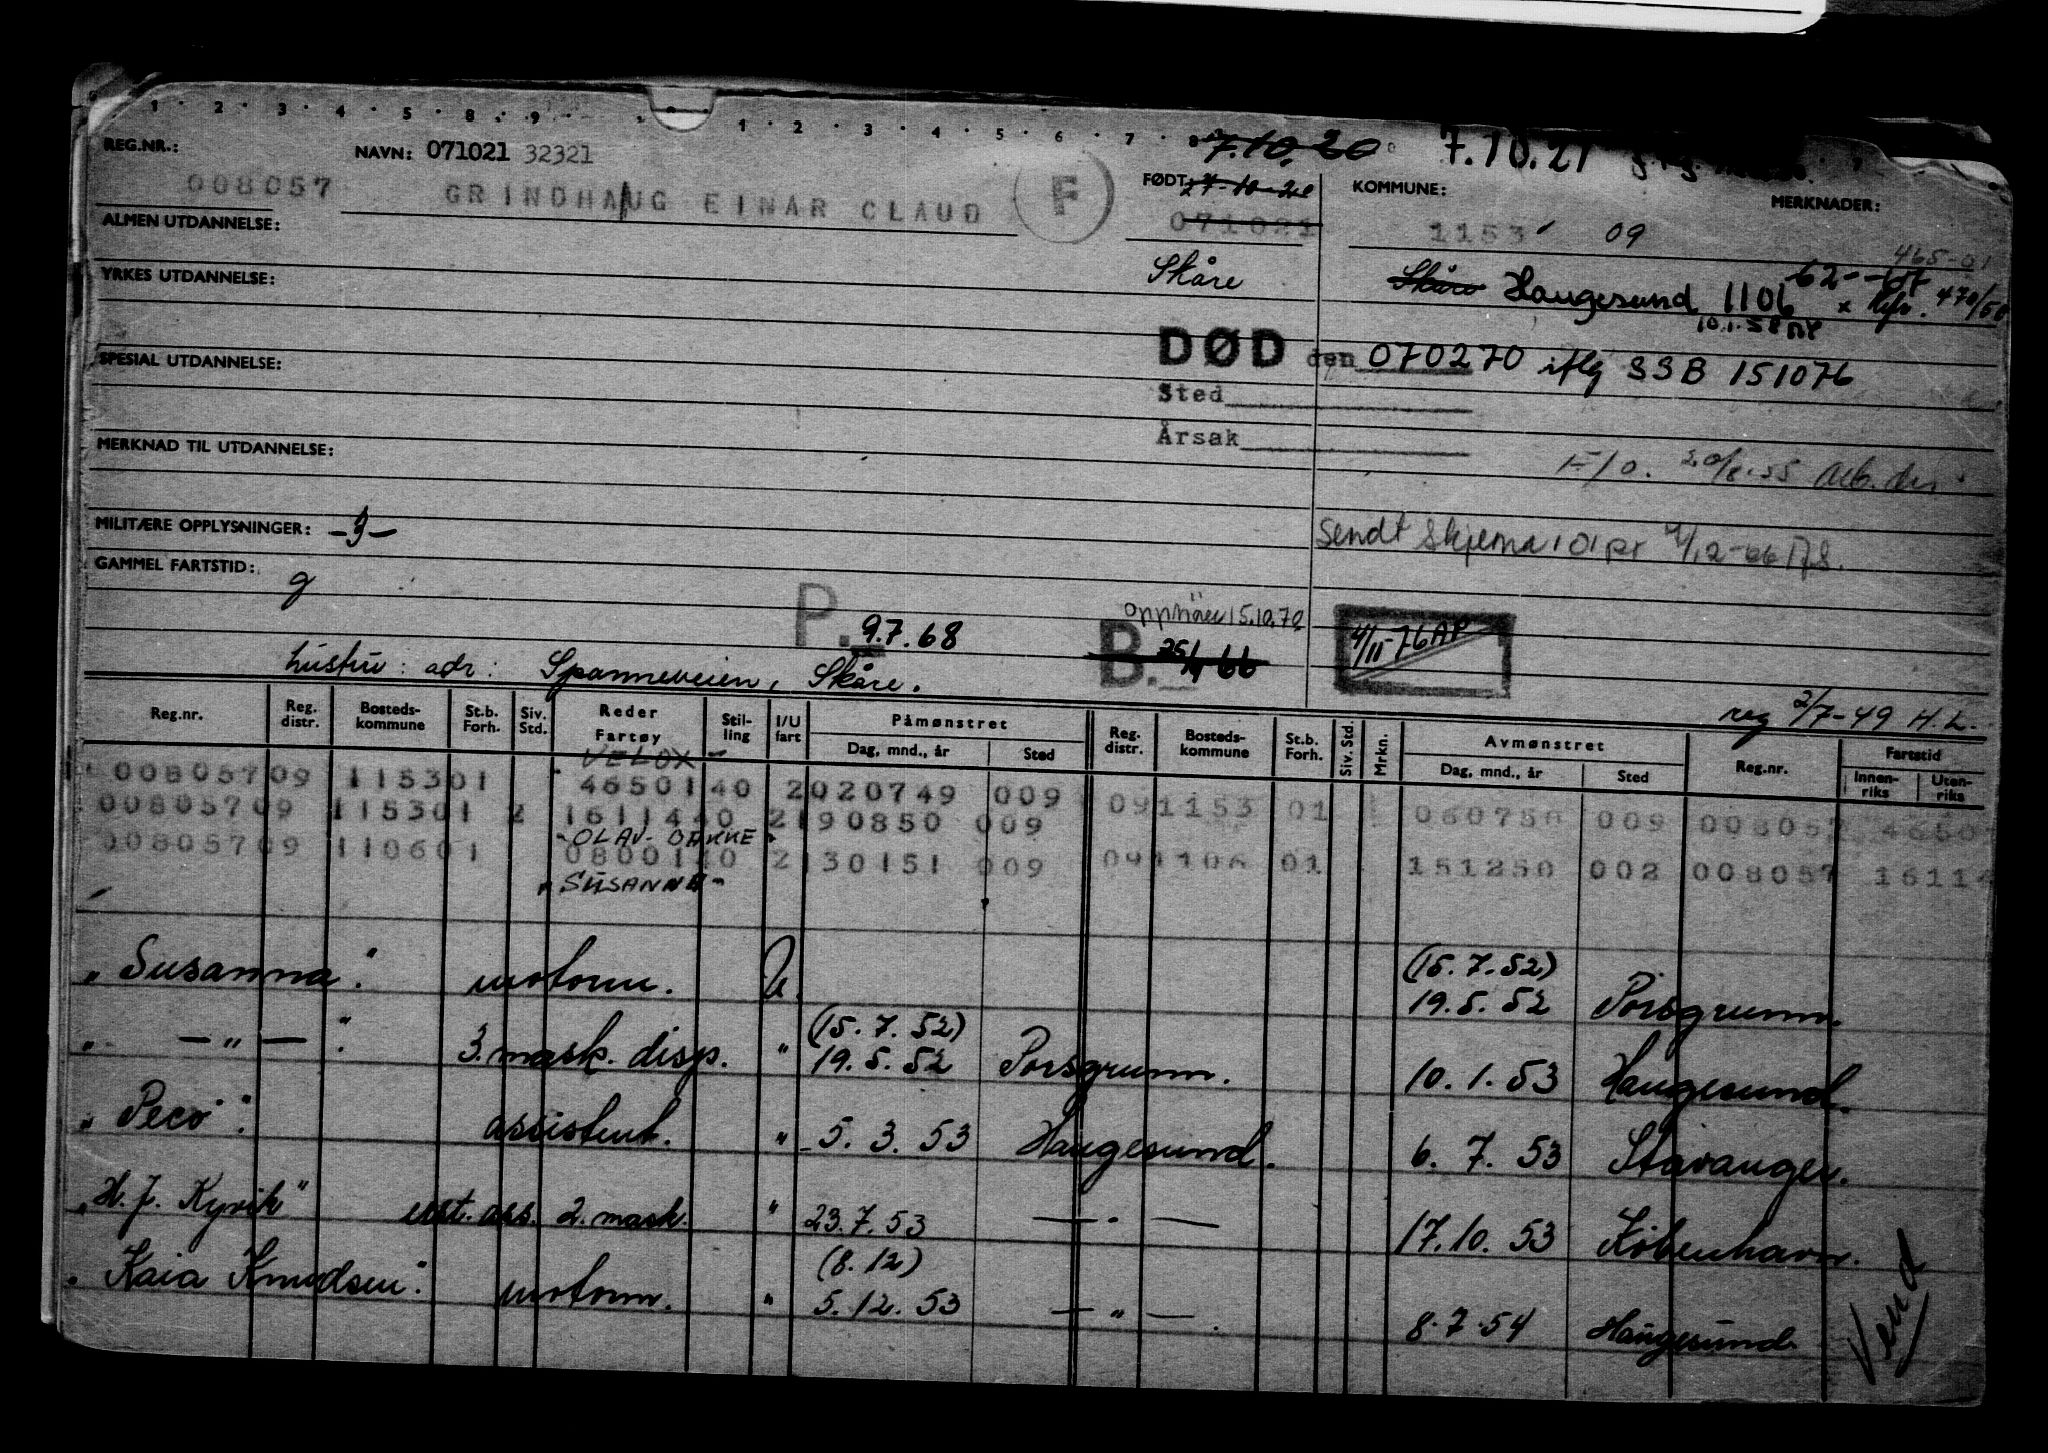 1 · 2 · 3 · 4 · 5 · 8 · 9 · 1 · 2 · 3 · 4 · 5 · 6 · 7
7.10.20 7.10.21
REG.NR.: NAVN: 071021 32321 FØDT: 7-10-20 KOMMUNE: MERKNADER:
008057 GRINDHAUG EINAR CLAUD F 071021 1153 09
ALMEN UTDANNELSE: 465-01
YRKES UTDANNELSE: Skåre Skåre Haugesund 1106 470/50
10.1.58
SPESIAL UTDANNELSE: DØD den 070270 iflg SSB 151076
Sted
MERKNAD TIL UTDANNELSE: Årsak
F/O. 20/8.55
MILITÆRE OPPLYSNINGER: Sendt Skjema 101 pr
GAMMEL FARTSTID: g
P. 9.7.68 15.10.70 B. 25/4 66 4/11-76 AP
hustru: adr: Spanneveien, Skåre.
reg 2/7-49 H.L.
Reg.nr. Reg. distr. Bosteds-kommune St.b. Forh. Siv. Std. Reder Fartøy Stil-ling I/U fart Påmønstret Dag, mnd., år Sted Reg. distr. Bosteds-kommune St.b. Forh. Siv. Std. Mrkn. Avmønstret Dag, mnd., år Sted Reg.nr. Fartstid Innen-riks Uten-riks
VELOX
008057 09 1153 01 46501 40 2 020749 009 09 1153 01 060750 009 008057 4650
008057 09 1153 01 2 16114 40 2 190850 009
OLAV BAKKE
008057 09 1106 01 08001 40 2 130151 009 09 1106 01 151250 002 008057 1611
"SUSANNA"
(15.7.52)
"Susanna". motorm. U. 19.5.52 Porsgrunn.
(15.7.52)
" — " — ". 3. mask. disp. " 19.5.52 Porsgrunn. 10.1.53 Haugesund.
"Peco". assistent. " 5.3.53 Haugesund. 6.7.53 Stavanger.
"H.J. Kyvik" ass. 2. mask. " 23.7.53 — " — 17.10.53 København.
(8.12)
"Kaia Knudsen". motorm. " 5.12.53 — " — 8.7.54 Haugesund.
Vend